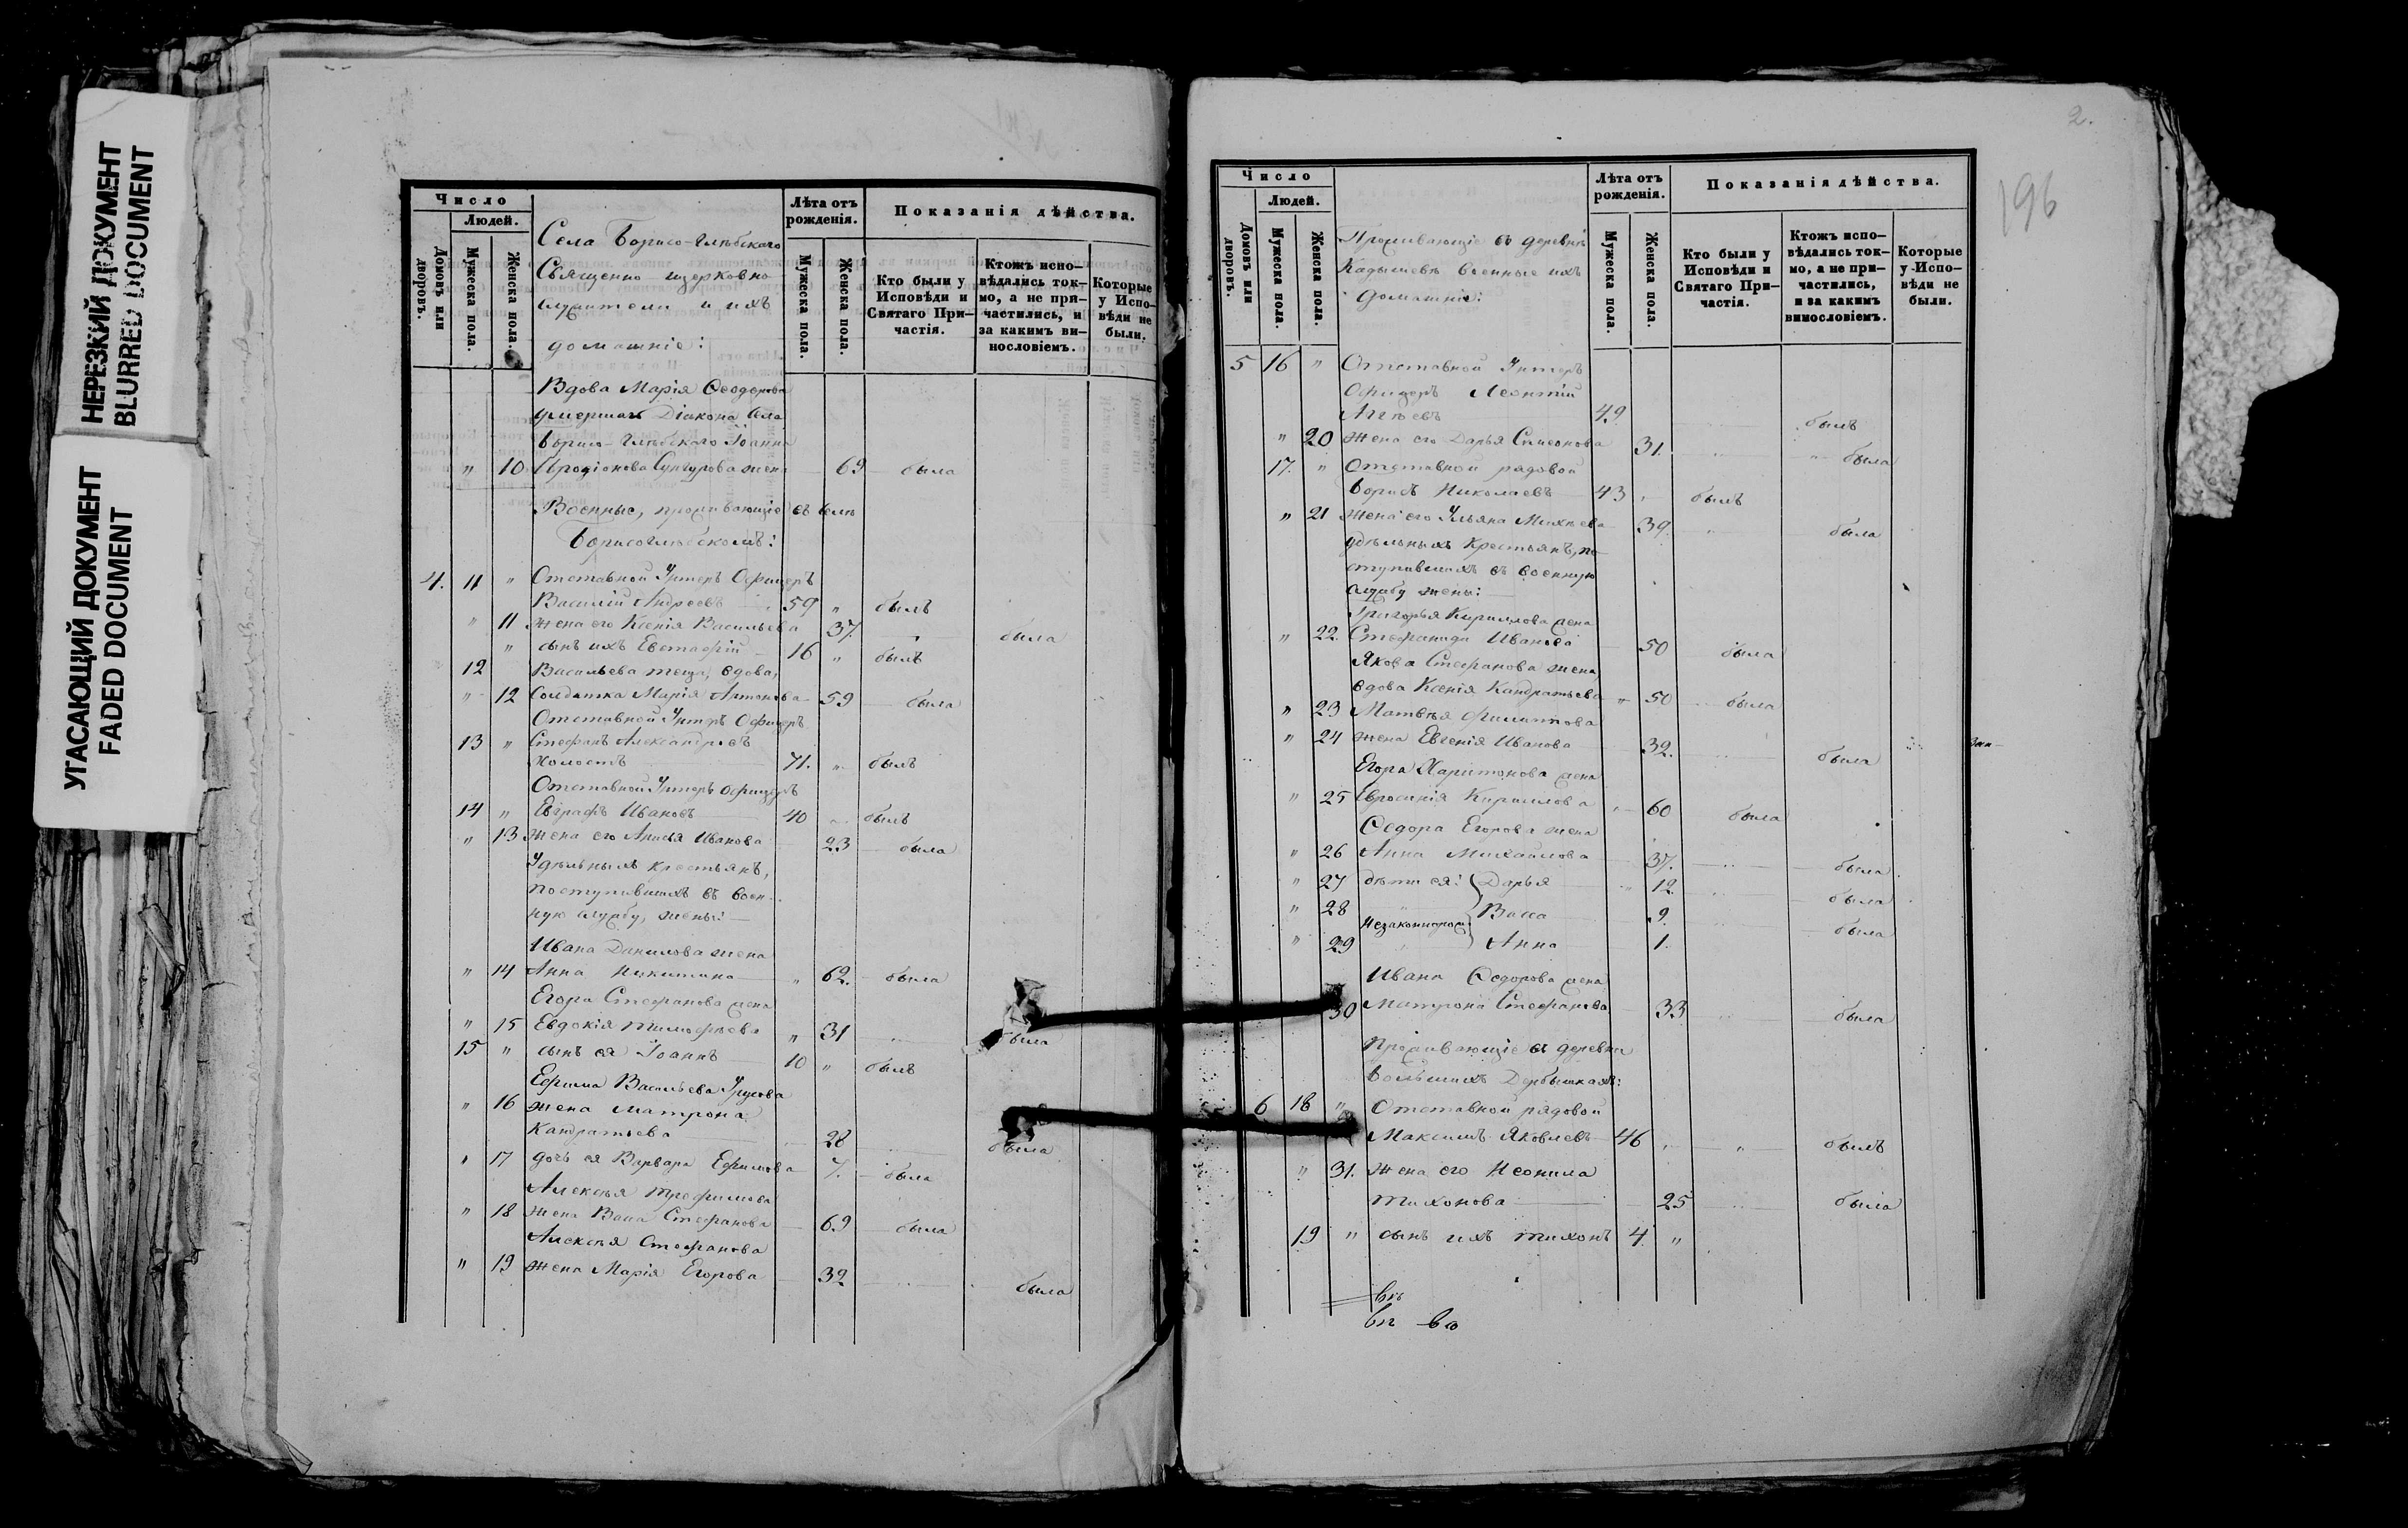 НЕРЕЗКИЙ ДОКУМЕНТ
BLURRED DOCUMENT
УГАСАЮЩИЙ ДОКУМЕНТ
FADED DOCUMENT
Число
Людей.
Домовъ или дворовъ.
Мужеска пола.
Женска пола.
Села Борисо-Глѣбскаго
Священно-церковно
служители и ихъ
домашніе:
Лѣта отъ рожденія.
Мужеска пола.
Женска пола.
Показанія дѣйства.
Кто были у Исповѣди и Святаго Причастія.
Ктожъ исповѣдались токмо, а не причастились, и за какимъ винословіемъ.
Которые у Исповѣди не были.
Вдова Марія Ѳеодорова
умершаго Діакона Села
Борисо-Глѣбскаго Іоанна
" 10 Иродіонова Сунгурова жена 69 была
Военные, проживающіе въ Селѣ
Борисоглѣбскомъ:
4. 11 " Отставной Унтеръ Офицеръ
Василій Андреевъ 59 " былъ
" 11 Жена его Ксенія Васильева 37 была
" сынъ ихъ Евстафій 16 " былъ
12 Васильева теща, вдова,
" 12 Солдатка Марія Антонова 59 была
Отставной Унтеръ Офицеръ
13 " Стефанъ Александровъ
Холостъ 71. " былъ
Отставной Унтеръ Офицеръ
14 " Евграфъ Ивановъ 40 былъ
" 13 Жена его Анисья Иванова 23 была
Удѣльныхъ крестьянъ,
поступившихъ въ воен-
ную службу, жены:
Ивана Данилова жена
" 14 Анна Никитина " 62. была
Егора Стефанова жена
" 15 Евдокія Тимофѣева " 31 была
15 " сынъ ея Іоаннъ 10 " былъ
Ефима Васильева
" 16 жена Матрона
Кандратьева 28 была
" 17 дочь ея Варвара Ефимова 7. была
Алексѣя Трофимова
" 18 Жена Васса Стефанова 69 была
Алексѣя Стефанова
" 19 Жена Марія Егорова 32 была
2.
196
Число
Людей.
Домовъ или дворовъ.
Мужеска пола.
Женска пола.
Проживающіе въ деревнѣ
Кадышевѣ военные ихъ
домашніе:
Лѣта отъ рожденія.
Мужеска пола.
Женска пола.
Показанія дѣйства.
Кто были у Исповѣди и Святаго Причастія.
Ктожъ исповѣдались токмо, а не причастились, и за какимъ винословіемъ.
Которые у Исповѣди не были.
5 16 " Отставной Унтеръ
Офицеръ Леонтій
49 былъ
" 20 Жена его Дарья Симеонова 31. была
17. " Отставной рядовой
Борисъ Николаевъ 43 былъ
" 21 Жена его Ульяна Михѣева 39. была
удѣльныхъ Крестьянъ, по-
ступившихъ въ военную
службу жены:
Григорья Кириллова жена
" 22. Стефанида Иванова 50 была
Якова Стефанова жена,
вдова Ксенія Кандратьева " 50 была
" 23 Матвѣя Филиппова
" 24 жена Евгенія Иванова 32. была
Егора Харитонова жена
" 25 Евросинія Кириллова 60 была
Ѳедора Егорова жена
" 26 Анна Михайлова 37. была
" 27 дѣти ея: Дарья 12. была
" 28 Васса 9. была
незаконнорож.
" 29 Анна 1.
Ивана Ѳедорова жена
30 Матрона Стефанова 33 была
Проживающіе въ деревнѣ
Большихъ Дербышкахъ:
6 18 " Отставной рядовой
Максимъ Яковлевъ 46 " былъ
" 31. Жена его Неонила
Тихонова 25 была
19 " сынъ ихъ Тихонъ 4 "